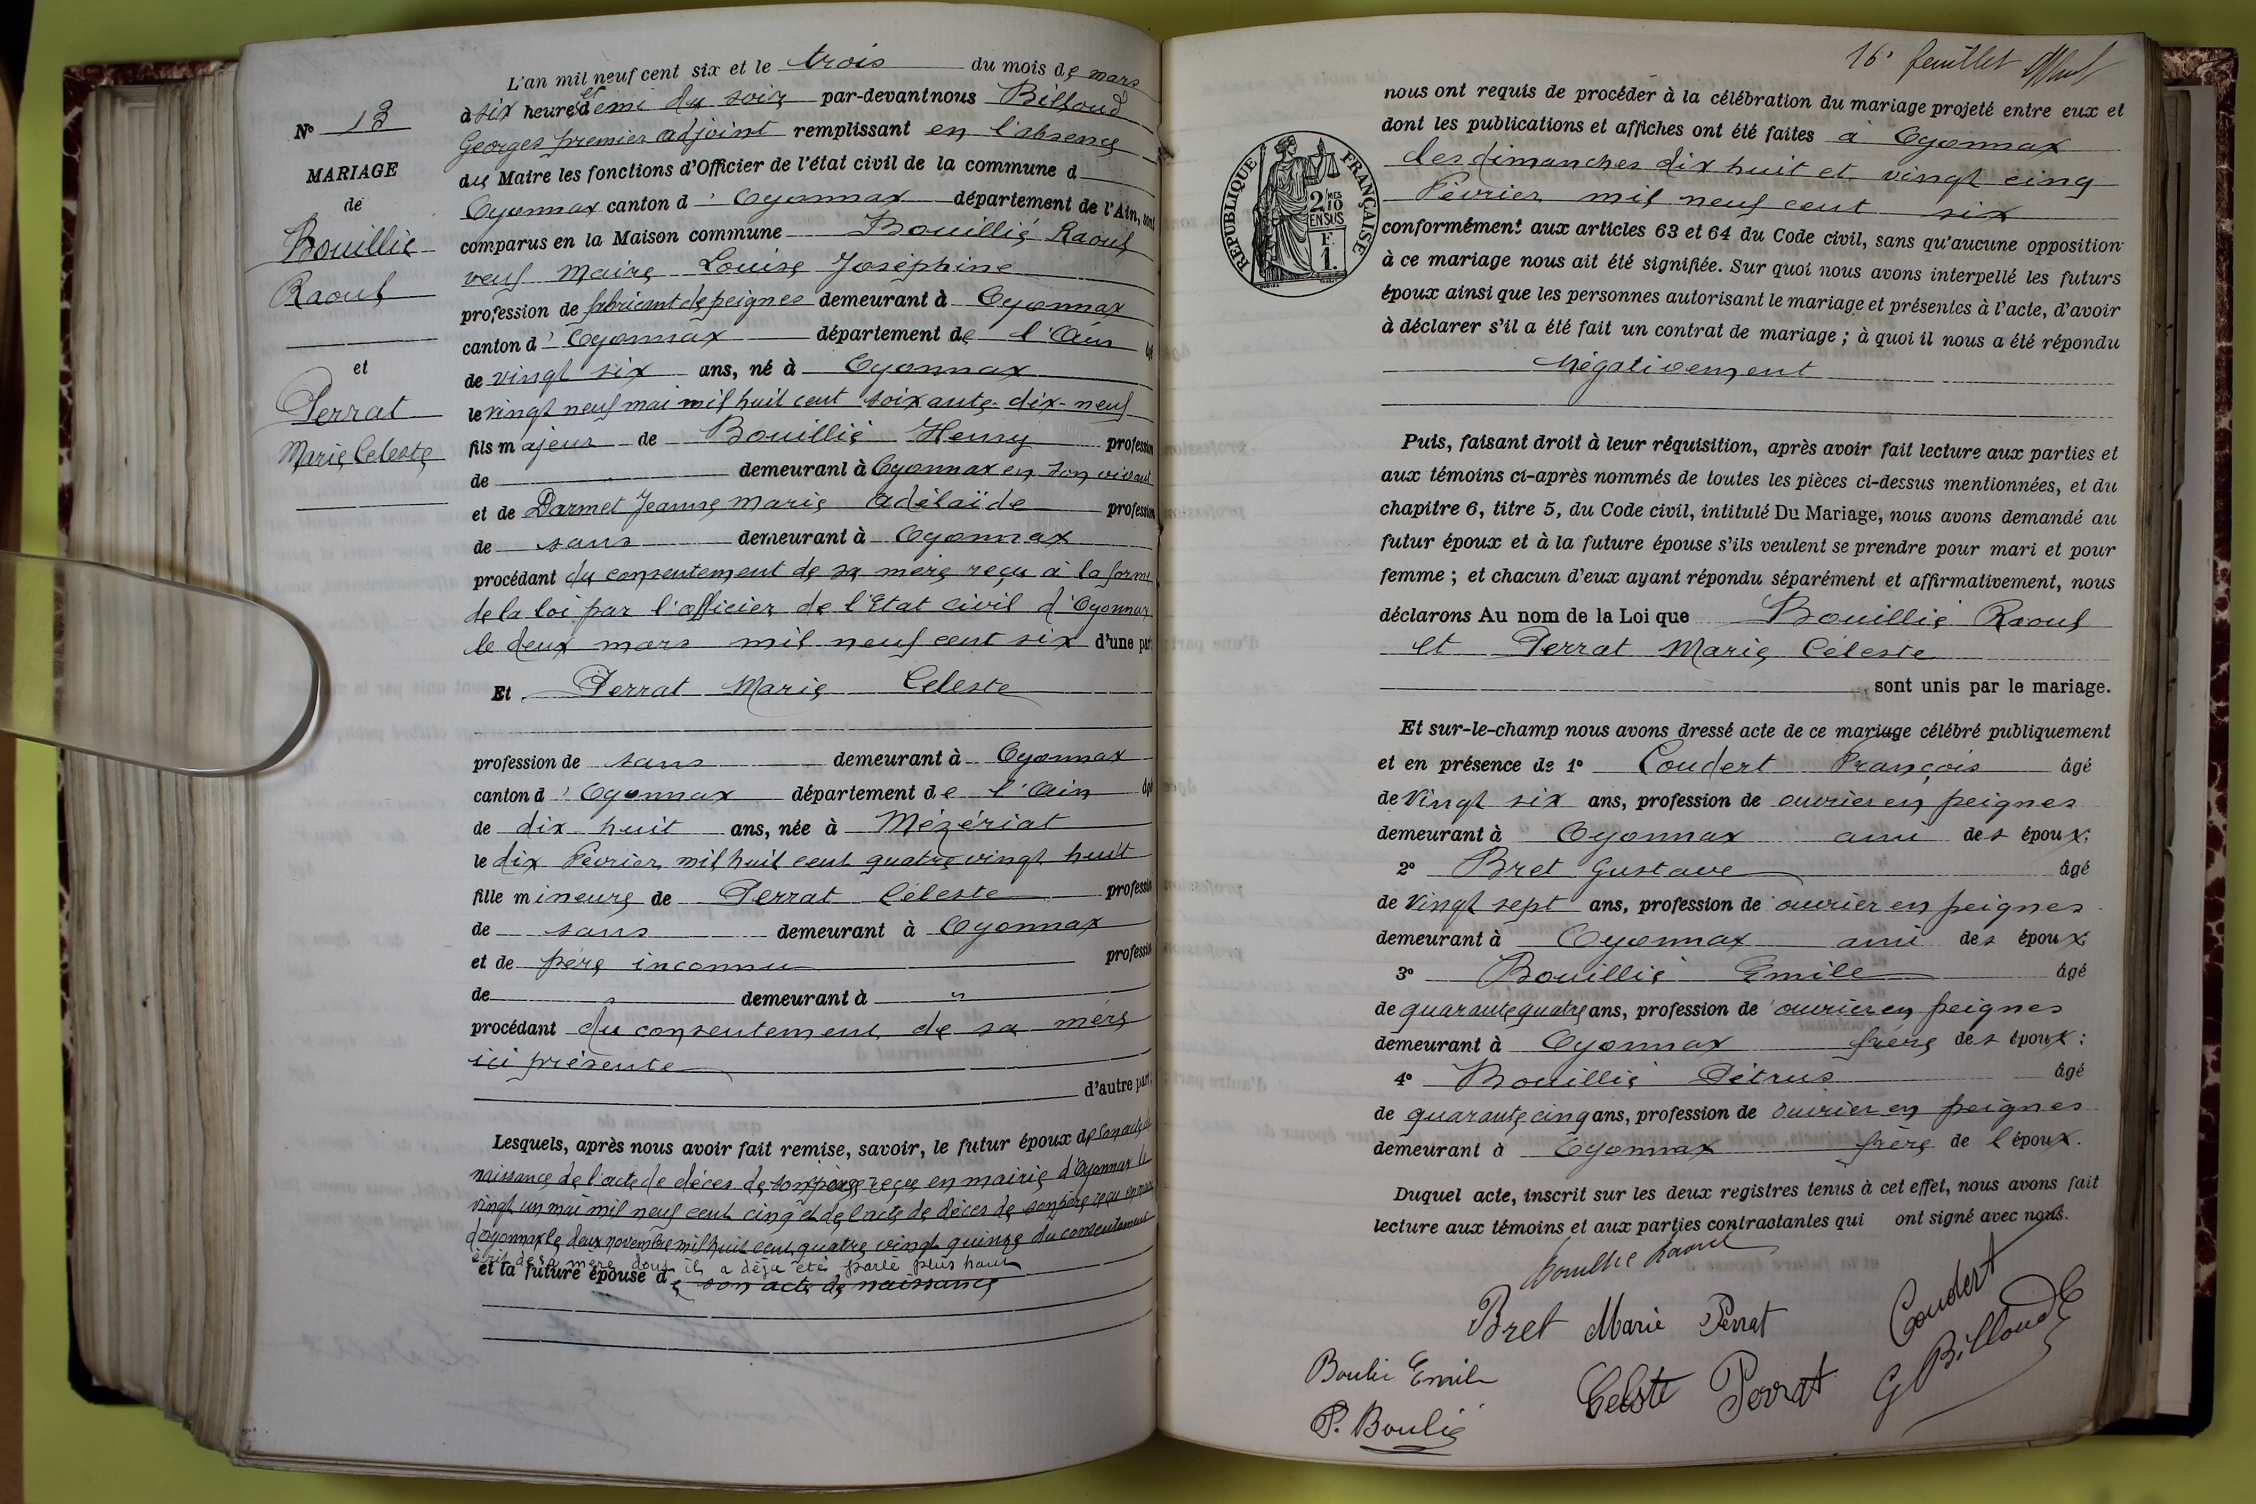 N° 13
MARIAGE
de
Bouillié
Raoul
et
Perrat
Marie Céleste
L'an mil neuf cent six et le trois du mois de mars
à six heures et demi du soir par-devant nous Billoud
Georges premier adjoint remplissant en l'absence
du Maire les fonctions d'Officier de l'état civil de la commune d
Oyonnax canton d'Oyonnax département de l'Ain, sont
comparus en la Maison commune Bouillié Raoul
veuf Maire Louise Joséphine
profession de fabricant de peignes demeurant à Oyonnax
canton d'Oyonnax département de l'Ain âgé
de vingt six ans, né à Oyonnax
le vingt neuf mai mil huit cent soixante-dix-neuf
fils majeur de Bouillié Henry profession
de demeurant à Oyonnax en son vivant
et de Darmet Jeanne Marie Adélaïde profession
de sans demeurant à Oyonnax
procédant du consentement de sa mère reçu à la forme
de la loi par l'officier de l'Etat civil d'Oyonnax
le deux mars mil neuf cent six d'une part
Et Perrat Marie Céleste
profession de sans demeurant à Oyonnax
canton d'Oyonnax département de l'Ain âgée
de dix huit ans, née à Mézériat
le dix Février mil huit cent quatre vingt huit
fille mineure de Perrat Céleste profession
de sans demeurant à Oyonnax
et de père inconnu profession
de " demeurant à "
procédant du consentement de sa mère
ici présente
d'autre part;
Lesquels, après nous avoir fait remise, savoir, le futur époux de son acte de
naissance de l'acte de décès de son épouse reçu en mairie d'Oyonnax le
vingt un mai mil neuf cent cinq et de l'acte de décès de son père reçu en mairie
d'Oyonnax le deux novembre mil huit cent quatre vingt quinze du consentement
écrit de sa mère dont il a déjà été parlé plus haut
et la future épouse de son acte de naissance
16e feuillet
nous ont requis de procéder à la célébration du mariage projeté entre eux et
dont les publications et affiches ont été faites à Oyonnax
les dimanches dix huit et vingt cinq
Février mil neuf cent six
RÉPUBLIQUE FRANÇAISE
2/10 EN SUS
F. 1.
conformément aux articles 63 et 64 du Code civil, sans qu'aucune opposition
à ce mariage nous ait été signifiée. Sur quoi nous avons interpellé les futurs
époux ainsi que les personnes autorisant le mariage et présentes à l'acte, d'avoir
à déclarer s'il a été fait un contrat de mariage ; à quoi il nous a été répondu
Négativement
Puis, faisant droit à leur réquisition, après avoir fait lecture aux parties et
aux témoins ci-après nommés de toutes les pièces ci-dessus mentionnées, et du
chapitre 6, titre 5, du Code civil, intitulé Du Mariage, nous avons demandé au
futur époux et à la future épouse s'ils veulent se prendre pour mari et pour
femme ; et chacun d'eux ayant répondu séparément et affirmativement, nous
déclarons Au nom de la Loi que Bouillié Raoul
et Perrat Marie Céleste
sont unis par le mariage.
Et sur-le-champ nous avons dressé acte de ce mariage célébré publiquement
et en présence de 1° Coudert François âgé
de vingt six ans, profession de ouvrier en peignes
demeurant à Oyonnax ami des époux;
2° Bret Gustave âgé
de vingt sept ans, profession de ouvrier en peignes
demeurant à Oyonnax ami des époux;
3° Bouillié Emile âgé
de quarante quatre ans, profession de ouvrier en peignes
demeurant à Oyonnax frère des époux;
4° Bouillié Pétrus âgé
de quarante cinq ans, profession de ouvrier en peignes
demeurant à Oyonnax frère de l'époux.
Duquel acte, inscrit sur les deux registres tenus à cet effet, nous avons fait
lecture aux témoins et aux parties contractantes qui ont signé avec nous.
Bouillié Raoul
Bret Marie Perrat Coudert
Boulié Emile Celste Perrat G Billoud
P. Boulié